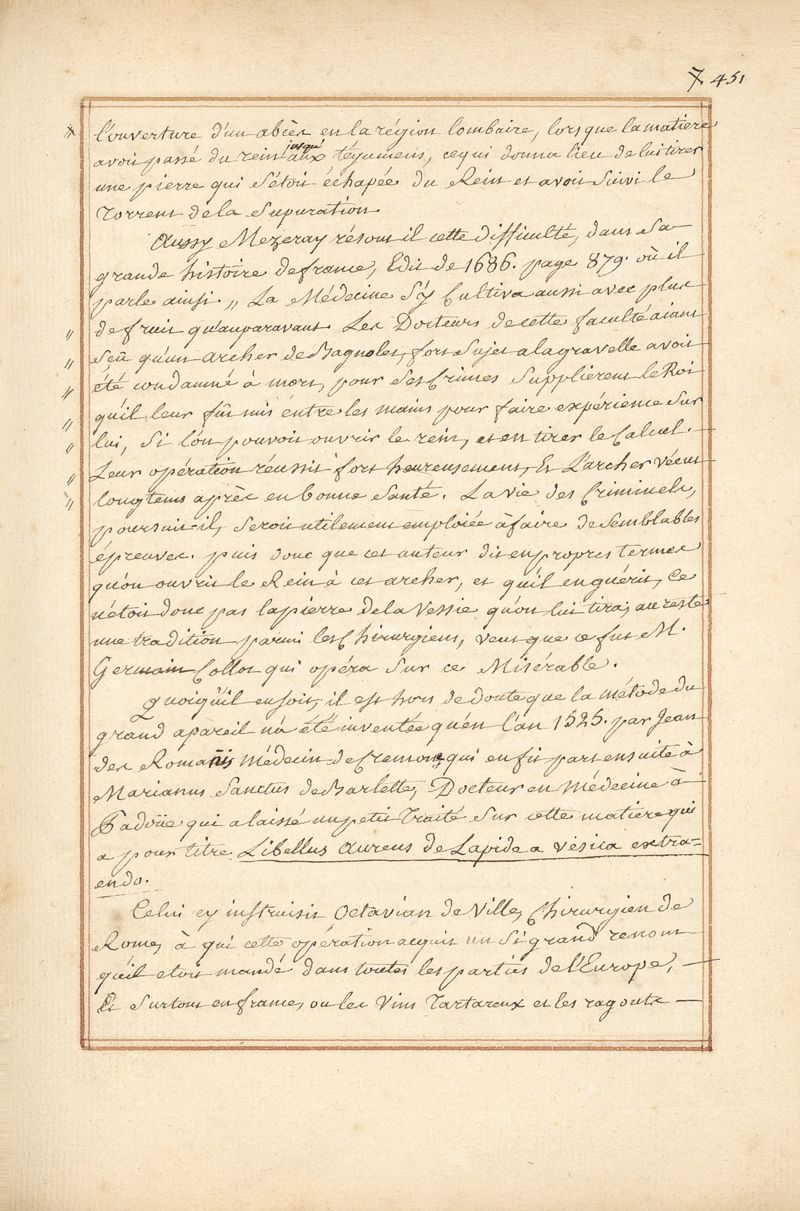 7 451
* l'ouverture d'un abcès en la région lombaire, lorsque la matiere
avoit passé du rein jusqu'aux tégumens, ce qui donna lieu de lui tirer
une pierre qui s'étoit échapée du Rein et avoit suivi le
Torrent de la supuration.
Aussy Mezeray résout il cette difficulté, dans sa
grande histoire de france, Edit de 1686. page 879. où il
parle ainsi. „ La Médecine s'y Cultiva aussi avec plus
„ de fruit qu'auparavant. Les Docteurs de cette faculté aiant
„ sçû qu'un archer de Bagnolet, fort sujet a la gravelle avoit
„ été condamné à mort, pour ses Crimes supplierent le Roi
„ qu'il leur fût mis entre les mains pour faire expérience sur
„ lui, si l'on pouvoit ouvrir le rein, et en tirer le Calcul.
„ Leur opération réussit fort heureusement, Et L'archer vécut
„ longtems après en bonne santé. La vie des Criminels,
poursuit-il, seroit utilement emploiée à faire de semblables
épreuves. puis donc que cet auteur dit en propres termes
qu'on ouvrit le Rein à cet archer, et qu'il en guérit, ce
n'étoit donc pas la pierre de la Vessie qu'on lui tira; au reste
une tradition parmi les Chirurgiens, veut que ce fut M.
Germain Collot qui opéra sur ce Misérable.
Quoiqu'il en soit, il est hors de doute que la métode du
grand apareil n'a été inventée qu'en l'an 1525. par Jean
des Romanis Médecin de Cremone, qui en fit part ensuite à
Marianus Sanctus de Barlette, Docteur en Médecine à
Padoüe qui a laissé un petit Traité sur cette matiere qui
a pour titre Libellus Aureus de Lapide a vesica extra-
endo.
Celui cy instruisit Octavian de Ville, Chirurgien de
Rome, à qui cette opération acquit un si grand renom
qu'il etoit mandé dans toutes les parties de l'Europe,
Et surtout en france, ou les Vins Tartareux et les ragouts